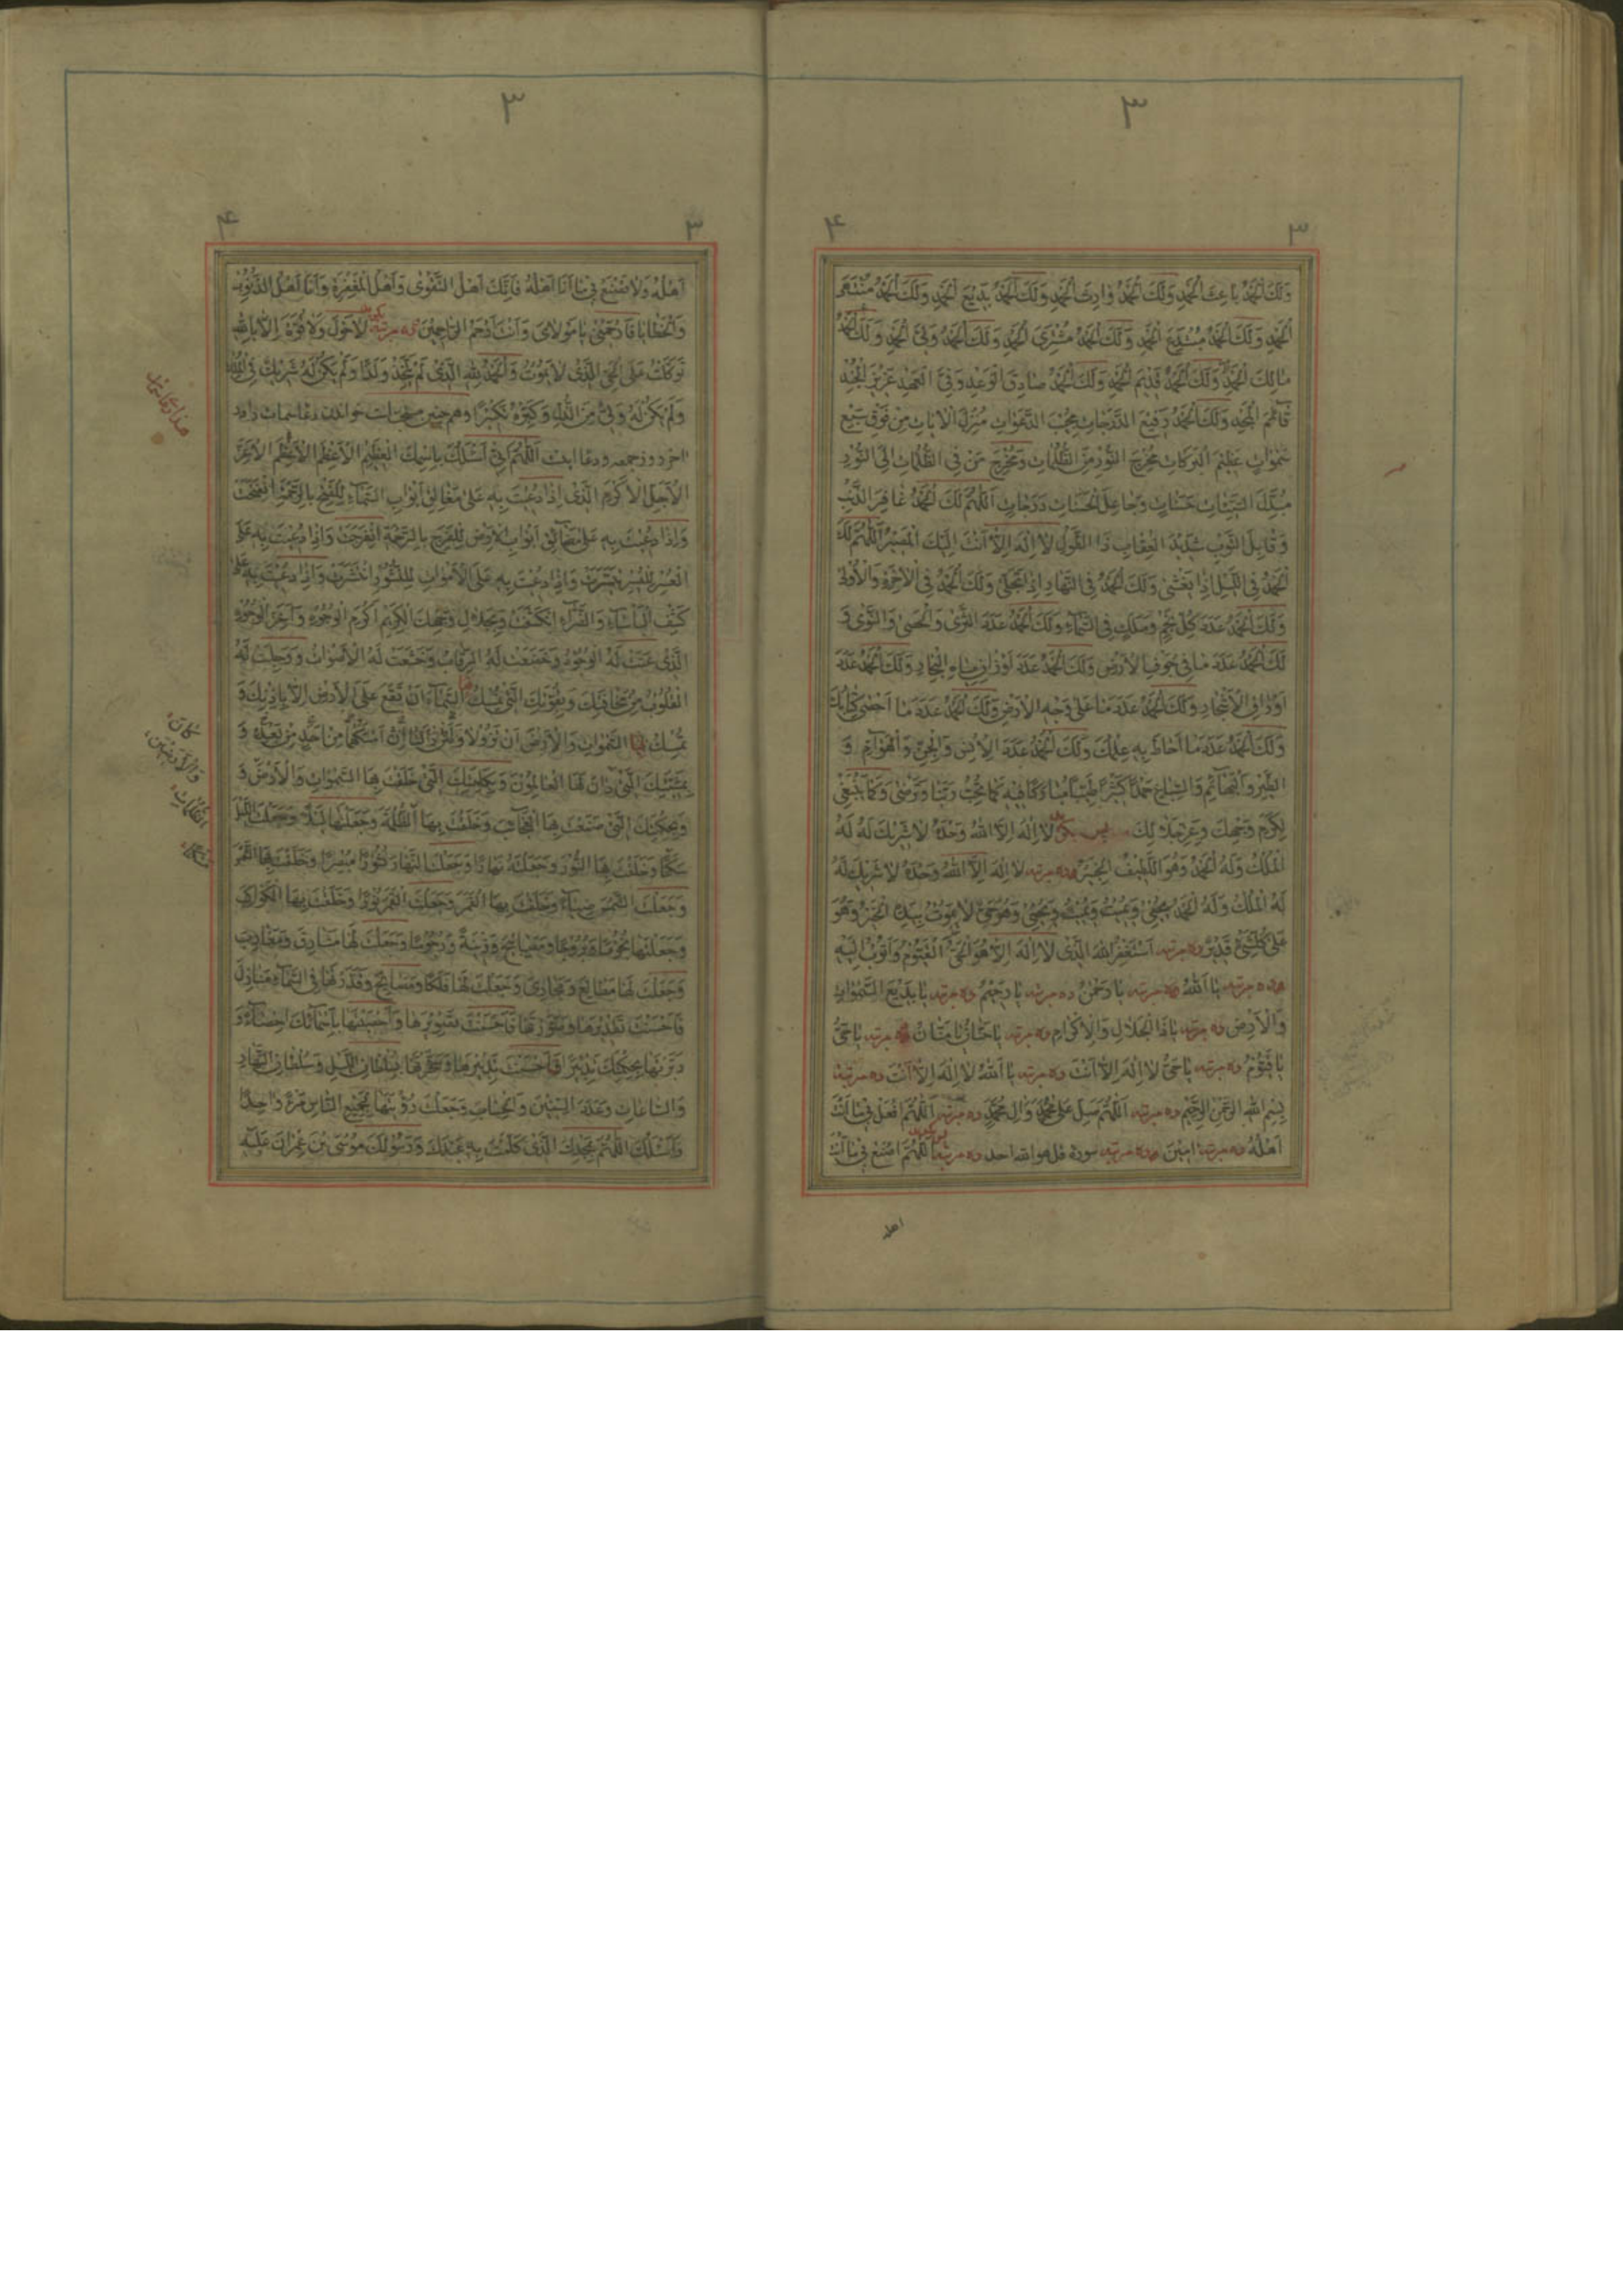 ٣
٣
٤
وَلَكَ الْحَمْدُ بَاعِثَ الْحَمْدِ وَلَكَ الْحَمْدُ وَارِثَ الْحَمْدِ وَلَكَ الْحَمْدُ بَدِيعَ الْحَمْدِ وَلَكَ الْحَمْدُ مُنْتَهَى
الْحَمْدِ وَلَكَ الْحَمْدُ مُبْتَدِعَ الْحَمْدِ وَلَكَ الْحَمْدُ مُشْتَرِيَ الْحَمْدِ وَلَكَ الْحَمْدُ وَلِيَّ الْحَمْدِ وَلَكَ الْحَمْدُ
مَالِكَ الْحَمْدِ وَلَكَ الْحَمْدُ قَدِيمَ الْحَمْدِ وَلَكَ الْحَمْدُ صَادِقَ الْوَعْدِ وَفِيَّ الْعَهْدِ عَزِيزَ الْجُنْدِ
قَائِمَ الْمَجْدِ وَلَكَ الْحَمْدُ رَفِيعَ الدَّرَجَاتِ مُجِيبَ الدَّعَوَاتِ مُنْزِلَ الْآيَاتِ مِنْ فَوْقِ سَبْعِ
سَمَوَاتٍ عَظِيمَ الْبَرَكَاتِ مُخْرِجَ النُّورِ مِنَ الظُّلُمَاتِ وَمُخْرِجَ مَنْ فِي الظُّلُمَاتِ إِلَى النُّورِ
مُبَدِّلَ السَّيِّئَاتِ حَسَنَاتٍ وَجَاعِلَ الْحَسَنَاتِ دَرَجَاتٍ اَللّٰهُمَّ لَكَ الْحَمْدُ غَافِرَ الذَّنْبِ
وَقَابِلَ التَّوْبِ شَدِيدَ الْعِقَابِ ذَا الطَّوْلِ لَا إِلَهَ إِلَّا أَنْتَ إِلَيْكَ الْمَصِيرُ اَللّٰهُمَّ لَكَ
الْحَمْدُ فِي اللَّيْلِ إِذَا يَغْشَى وَلَكَ الْحَمْدُ فِي النَّهَارِ إِذَا تَجَلَّى وَلَكَ الْحَمْدُ فِي الْآخِرَةِ وَالْأُولَى
وَلَكَ الْحَمْدُ عَدَدَ كُلِّ نَجْمٍ وَمَلَكٍ فِي السَّمَاءِ وَلَكَ الْحَمْدُ عَدَدَ الثَّرَى وَالْحَصَى وَالنَّوَى وَ
لَكَ الْحَمْدُ عَدَدَ مَا فِي جَوْفِ الْأَرْضِ وَلَكَ الْحَمْدُ عَدَدَ أَوْزَانِ مِيَاهِ الْبِحَارِ وَلَكَ الْحَمْدُ عَدَدَ
أَوْرَاقِ الْأَشْجَارِ وَلَكَ الْحَمْدُ عَدَدَ مَا عَلَى وَجْهِ الْأَرْضِ وَلَكَ الْحَمْدُ عَدَدَ مَا أَحْصَى كِتَابُكَ
وَلَكَ الْحَمْدُ عَدَدَ مَا أَحَاطَ بِهِ عِلْمُكَ وَلَكَ الْحَمْدُ عَدَدَ الْإِنْسِ وَالْجِنِّ وَالْهَوَامِّ وَ
الطَّيْرِ وَالْبَهَائِمِ وَالسِّبَاعِ حَمْدًا كَثِيرًا طَيِّبًا مُبَارَكًا فِيهِ كَمَا تُحِبُّ رَبَّنَا وَتَرْضَى وَكَمَا يَنْبَغِي
لِكَرَمِ وَجْهِكَ وَعِزِّ جَلَالِكَ پس لَا إِلَهَ إِلَّا اللّٰهُ وَحْدَهُ لَا شَرِيكَ لَهُ لَهُ
الْمُلْكُ وَلَهُ الْحَمْدُ وَهُوَ اللَّطِيفُ الْخَبِيرُ ده مرتبه لَا إِلَهَ إِلَّا اللّٰهُ وَحْدَهُ لَا شَرِيكَ لَهُ
لَهُ الْمُلْكُ وَلَهُ الْحَمْدُ يُحْيِي وَيُمِيتُ وَيُمِيتُ وَيُحْيِي وَهُوَ حَيٌّ لَا يَمُوتُ بِيَدِهِ الْخَيْرُ وَهُوَ
عَلَى كُلِّ شَيْءٍ قَدِيرٌ ده مرتبه أَسْتَغْفِرُ اللّٰهَ الَّذِي لَا إِلَهَ إِلَّا هُوَ الْحَيُّ الْقَيُّومُ وَأَتُوبُ إِلَيْهِ
ده مرتبه يَا اَللّٰهُ ده مرتبه يَا رَحْمٰنُ ده مرتبه يَا رَحِيمُ ده مرتبه يَا بَدِيعَ السَّمٰوَاتِ
وَالْأَرْضِ ده مرتبه يَا ذَا الْجَلَالِ وَالْإِكْرَامِ ده مرتبه يَا حَنَّانُ يَا مَنَّانُ ده مرتبه يَا حَيُّ
يَا قَيُّومُ ده مرتبه يَا حَيُّ لَا إِلَهَ إِلَّا أَنْتَ ده مرتبه يَا اَللّٰهُ لَا إِلَهَ إِلَّا أَنْتَ ده مرتبه
بِسْمِ اللّٰهِ الرَّحْمٰنِ الرَّحِيمِ ده مرتبه اَللّٰهُمَّ صَلِّ عَلَى مُحَمَّدٍ وَآلِ مُحَمَّدٍ ده مرتبه اَللّٰهُمَّ افْعَلْ بِي مَا أَنْتَ
أَهْلُهُ ده مرتبه اٰمِينَ ده مرتبه سورهٔ قل هو الله احد ده مرتبه اَللّٰهُمَّ اصْنَعْ بِي مَا أَنْتَ
اهله
٣
٣
٤
أَهْلُهُ وَلَا تَصْنَعْ بِي مَا أَنَا أَهْلُهُ فَإِنَّكَ أَهْلُ التَّقْوَى وَأَهْلُ الْمَغْفِرَةِ وَأَنَا أَهْلُ الذُّنُوبِ
وَالْخَطَايَا فَارْحَمْنِي يَا مَوْلَايَ وَأَنْتَ أَرْحَمُ الرَّاحِمِينَ ده مرتبه لَا حَوْلَ وَلَا قُوَّةَ إِلَّا بِاللّٰهِ
تَوَكَّلْتُ عَلَى الْحَيِّ الَّذِي لَا يَمُوتُ وَالْحَمْدُ لِلّٰهِ الَّذِي لَمْ يَتَّخِذْ وَلَدًا وَلَمْ يَكُنْ لَهُ شَرِيكٌ فِي الْمُلْكِ
وَلَمْ يَكُنْ لَهُ وَلِيٌّ مِنَ الذُّلِّ وَكَبِّرْهُ تَكْبِيرًا وهم چنین خواندن دعا سمات در
اخر روز جمعه ودعا اَللّٰهُمَّ إِنِّي أَسْئَلُكَ بِاسْمِكَ الْعَظِيمِ الْأَعْظَمِ الْأَعْظَمِ الْأَعَزِّ
الْأَجَلِّ الْأَكْرَمِ الَّذِي إِذَا دُعِيتَ بِهِ عَلَى مَغَالِقِ أَبْوَابِ السَّمَاءِ لِلْفَتْحِ بِالرَّحْمَةِ انْفَتَحَتْ
وَإِذَا دُعِيتَ بِهِ عَلَى مَضَائِقِ أَبْوَابِ الْأَرْضِ لِلْفَرَجِ بِالرَّحْمَةِ انْفَرَجَتْ وَإِذَا دُعِيتَ بِهِ عَلَى
الْعُسْرِ لِلْيُسْرِ تَيَسَّرَتْ وَإِذَا دُعِيتَ بِهِ عَلَى الْأَمْوَاتِ لِلنُّشُورِ انْتَشَرَتْ وَإِذَا دُعِيتَ بِهِ عَلَى
كَشْفِ الْبَأْسَاءِ وَالضَّرَّاءِ انْكَشَفَتْ وَبِجَلَالِ وَجْهِكَ الْكَرِيمِ أَكْرَمِ الْوُجُوهِ وَأَعَزِّ الْوُجُوهِ
الَّذِي عَنَتْ لَهُ الْوُجُوهُ وَخَضَعَتْ لَهُ الرِّقَابُ وَخَشَعَتْ لَهُ الْأَصْوَاتُ وَوَجِلَتْ لَهُ
الْقُلُوبُ مِنْ مَخَافَتِكَ وَبِقُوَّتِكَ الَّتِي تُمْسِكُ السَّمَاءَ أَنْ تَقَعَ عَلَى الْأَرْضِ إِلَّا بِإِذْنِكَ وَ
تُمْسِكُ السَّمٰوَاتِ وَالْأَرْضَ أَنْ تَزُولَا وَلَئِنْ زَالَتَا إِنْ أَمْسَكَهُمَا مِنْ أَحَدٍ مِنْ بَعْدِهِ وَ
بِمَشِيَّتِكَ الَّتِي دَانَ لَهَا الْعَالَمُونَ وَبِكَلِمَتِكَ الَّتِي خَلَقْتَ بِهَا السَّمٰوَاتِ وَالْأَرْضَ وَ
وَبِحِكْمَتِكَ الَّتِي صَنَعْتَ بِهَا الْعَجَائِبَ وَخَلَقْتَ بِهَا الظُّلْمَةَ وَجَعَلْتَهَا لَيْلًا وَجَعَلْتَ اللَّيْلَ
سَكَنًا وَخَلَقْتَ بِهَا النُّورَ وَجَعَلْتَهُ نَهَارًا وَجَعَلْتَ النَّهَارَ نُشُورًا مُبْصِرًا وَخَلَقْتَ بِهَا الشَّمْسَ
وَجَعَلْتَ الشَّمْسَ ضِيَاءً وَخَلَقْتَ بِهَا الْقَمَرَ وَجَعَلْتَ الْقَمَرَ نُورًا وَخَلَقْتَ بِهَا الْكَوَاكِبَ
وَجَعَلْتَهَا نُجُومًا وَبُرُوجًا وَمَصَابِيحَ وَزِينَةً وَرُجُومًا وَجَعَلْتَ لَهَا مَشَارِقَ وَمَغَارِبَ
وَجَعَلْتَ لَهَا مَطَالِعَ وَمَجَارِيَ وَجَعَلْتَ لَهَا فَلَكًا وَمَسَابِحَ وَقَدَّرْتَهَا فِي السَّمَاءِ مَنَازِلَ
فَأَحْسَنْتَ تَقْدِيرَهَا وَصَوَّرْتَهَا فَأَحْسَنْتَ تَصْوِيرَهَا وَأَحْصَيْتَهَا بِأَسْمَائِكَ إِحْصَاءً وَ
دَبَّرْتَهَا بِحِكْمَتِكَ تَدْبِيرًا فَأَحْسَنْتَ تَدْبِيرَهَا وَسَخَّرْتَهَا بِسُلْطَانِ اللَّيْلِ وَسُلْطَانِ النَّهَارِ
وَالسَّاعَاتِ وَعَدَدِ السِّنِينَ وَالْحِسَابِ وَجَعَلْتَ رُؤْيَتَهَا لِجَمِيعِ النَّاسِ مَرْءًا وَاحِدًا
وَأَسْئَلُكَ اللّٰهُمَّ بِمَجْدِكَ الَّذِي كَلَّمْتَ بِهِ عَبْدَكَ وَرَسُولَكَ مُوسَى بْنَ عِمْرَانَ عَلَيْهِ